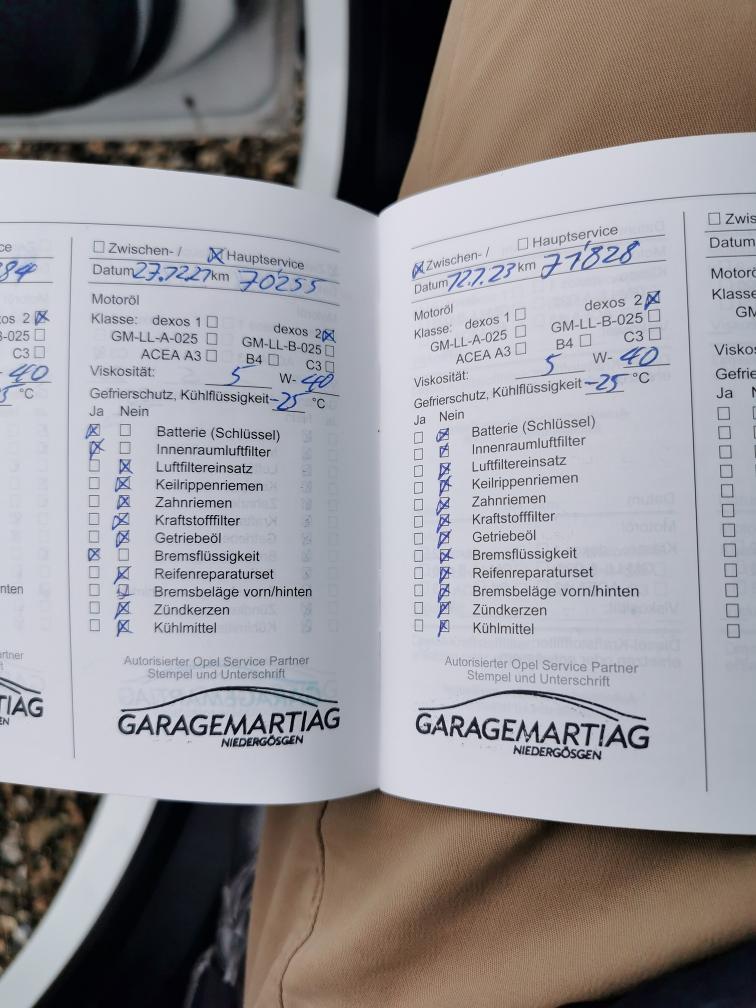 ce
84
os 2
B-025
C3
40
°C
nten
artner
ift
TIAG
EN
Zwischen- / Hauptservice
Datum km 70255
Motoröl
Klasse: dexos 1 dexos 2
GM-LL-A-025 GM-LL-B-025
ACEA A3 B4 C3
Viskosität: 5 W- 40
Gefrierschutz, Kühlflüssigkeit -25 °C
Ja Nein
Batterie (Schlüssel)
Innenraumluftfilter
Luftfiltereinsatz
Keilrippenriemen
Zahnriemen
Kraftstofffilter
Getriebeöl
Bremsflüssigkeit
Reifenreparaturset
Bremsbeläge vorn/hinten
Zündkerzen
Kühlmittel
Autorisierter Opel Service Partner
Stempel und Unterschrift
GARAGEMARTIAG
NIEDERGÖSGEN
Zwischen- / Hauptservice
Datum 12.7.23 km 71'828
Motoröl
Klasse: dexos 1 dexos 2
GM-LL-A-025 GM-LL-B-025
ACEA A3 B4 C3
Viskosität: 5 W- 40
Gefrierschutz, Kühlflüssigkeit -25 °C
Ja Nein
Batterie (Schlüssel)
Innenraumluftfilter
Luftfiltereinsatz
Keilrippenriemen
Zahnriemen
Kraftstofffilter
Getriebeöl
Bremsflüssigkeit
Reifenreparaturset
Bremsbeläge vorn/hinten
Zündkerzen
Kühlmittel
Autorisierter Opel Service Partner
Stempel und Unterschrift
GARAGEMARTIAG
NIEDERGÖSGEN
Zwis
Datum
Motorö
Klasse
GM
Viskos
Gefrie
Ja N